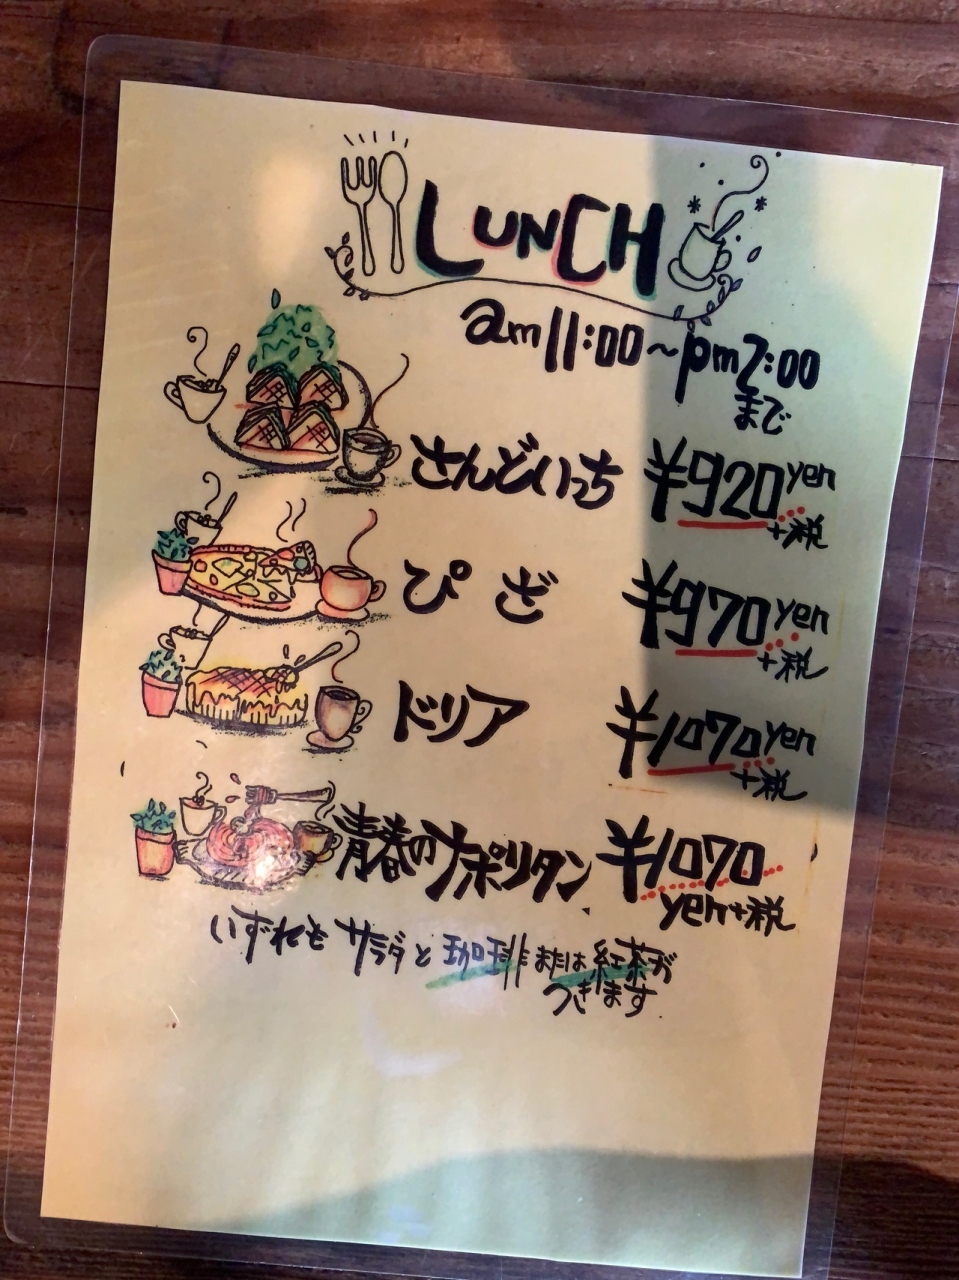 LUNCH
am11:00~pm2:00
まで
さんどいっち ¥920yen
+税
ぴざ ¥970yen
+税
ドリア ¥1070yen
+税
青春のナポリタン ¥1070
yen+税
いずれも サラダと 珈琲 または 紅茶が
つきます